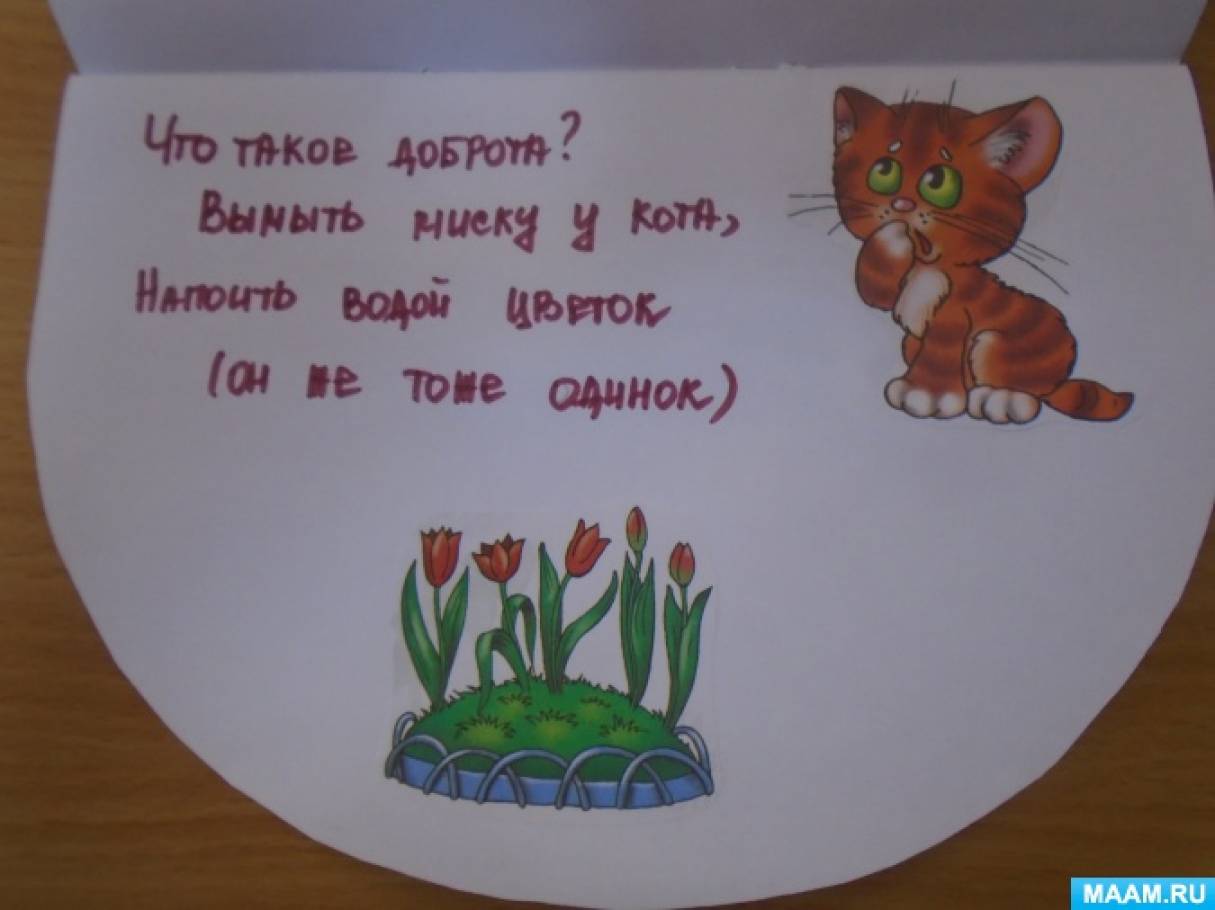 Что такое доброта?
Вымыть миску у кота,
Напоить водой цветок
(он же тоже одинок)
MAAM.RU